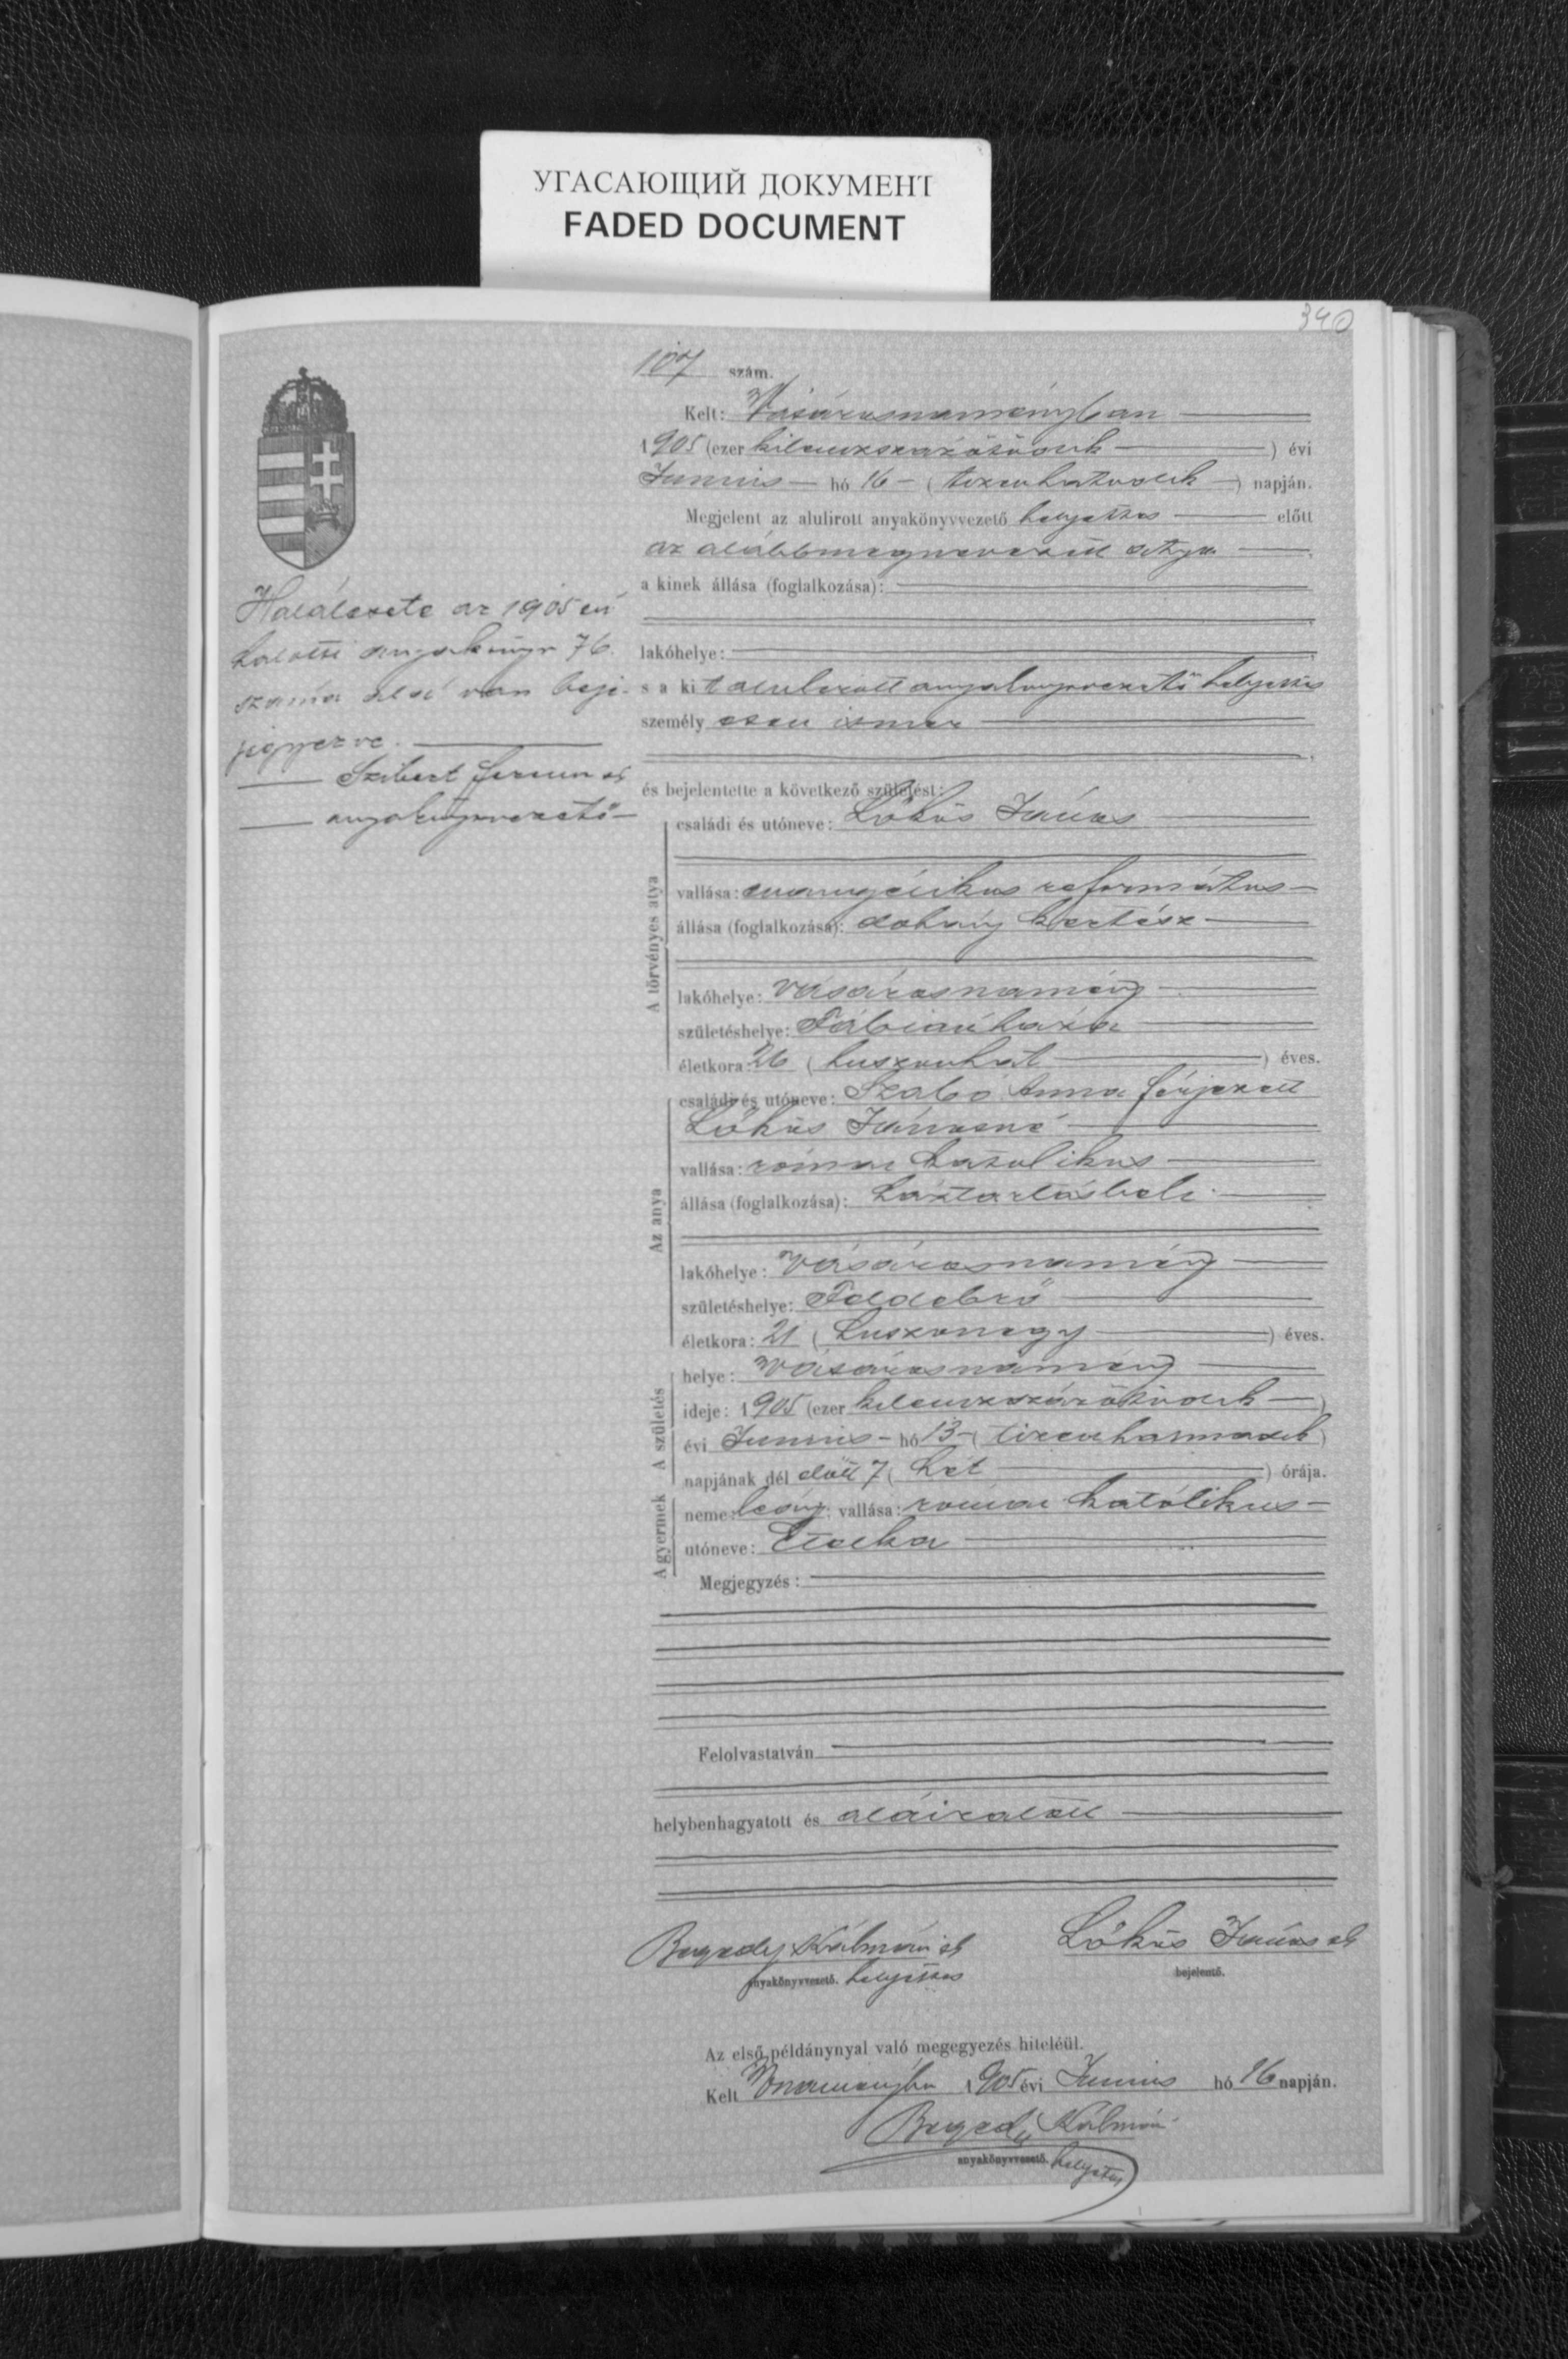 УГАСАЮЩИЙ ДОКУМЕНТ
FADED DOCUMENT
340
107 szám.
Kelt: Vásárosnaményban
1905 (ezer kilenczszázötödik) évi
Junius hó 16 (tizenhatodik) napján.
Megjelent az alulirott anyakönyvvezető helyettes előtt
az alább megnevezett atya
a kinek állása (foglalkozása):
lakóhelye:
s a kit alulirott anyakönyvvezető helyettes
személyesen ismer
és bejelentette a következő születést:
A törvényes atya
családi és utóneve: Lőkös János
vallása: evangélikus református
állása (foglalkozása): dohány kertész
lakóhelye: Vásárosnamény
születéshelye: Fábiánháza
életkora: 26 (huszonhat) éves.
Az anya
családi és utóneve: Szabó Anna férjezett
Lőkös Jánosné
vallása: római katolikus
állása (foglalkozása): háztartásbeli
lakóhelye: Vásárosnamény
születéshelye: Feldebrő
életkora: 21 (huszonegy) éves.
A születés
helye: Vásárosnamény
ideje: 1905 (ezer kilenczszázötödik)
évi Junius hó 13 (tizenharmadik)
napjának dél előtt 7 (hét) órája.
A gyermek
neme: leány; vallása: római katólikus
utóneve: Etelka
Megjegyzés:
Felolvastatván
helybenhagyatott és aláiratott
Kálmán sk Lőkös János sk
anyakönyvvezető. helyettes bejelentő.
Az első példánynyal való megegyezés hiteléül.
Kelt Vnaményba 1905 évi Junius hó 16 napján.
Kálmán
anyakönyvvezető. helyettes
Halálesete az 1905 évi
halotti anyakönyv 76.
száma alatt van beje-
gyezve.
Ferencz sk
anyakönyvvezető